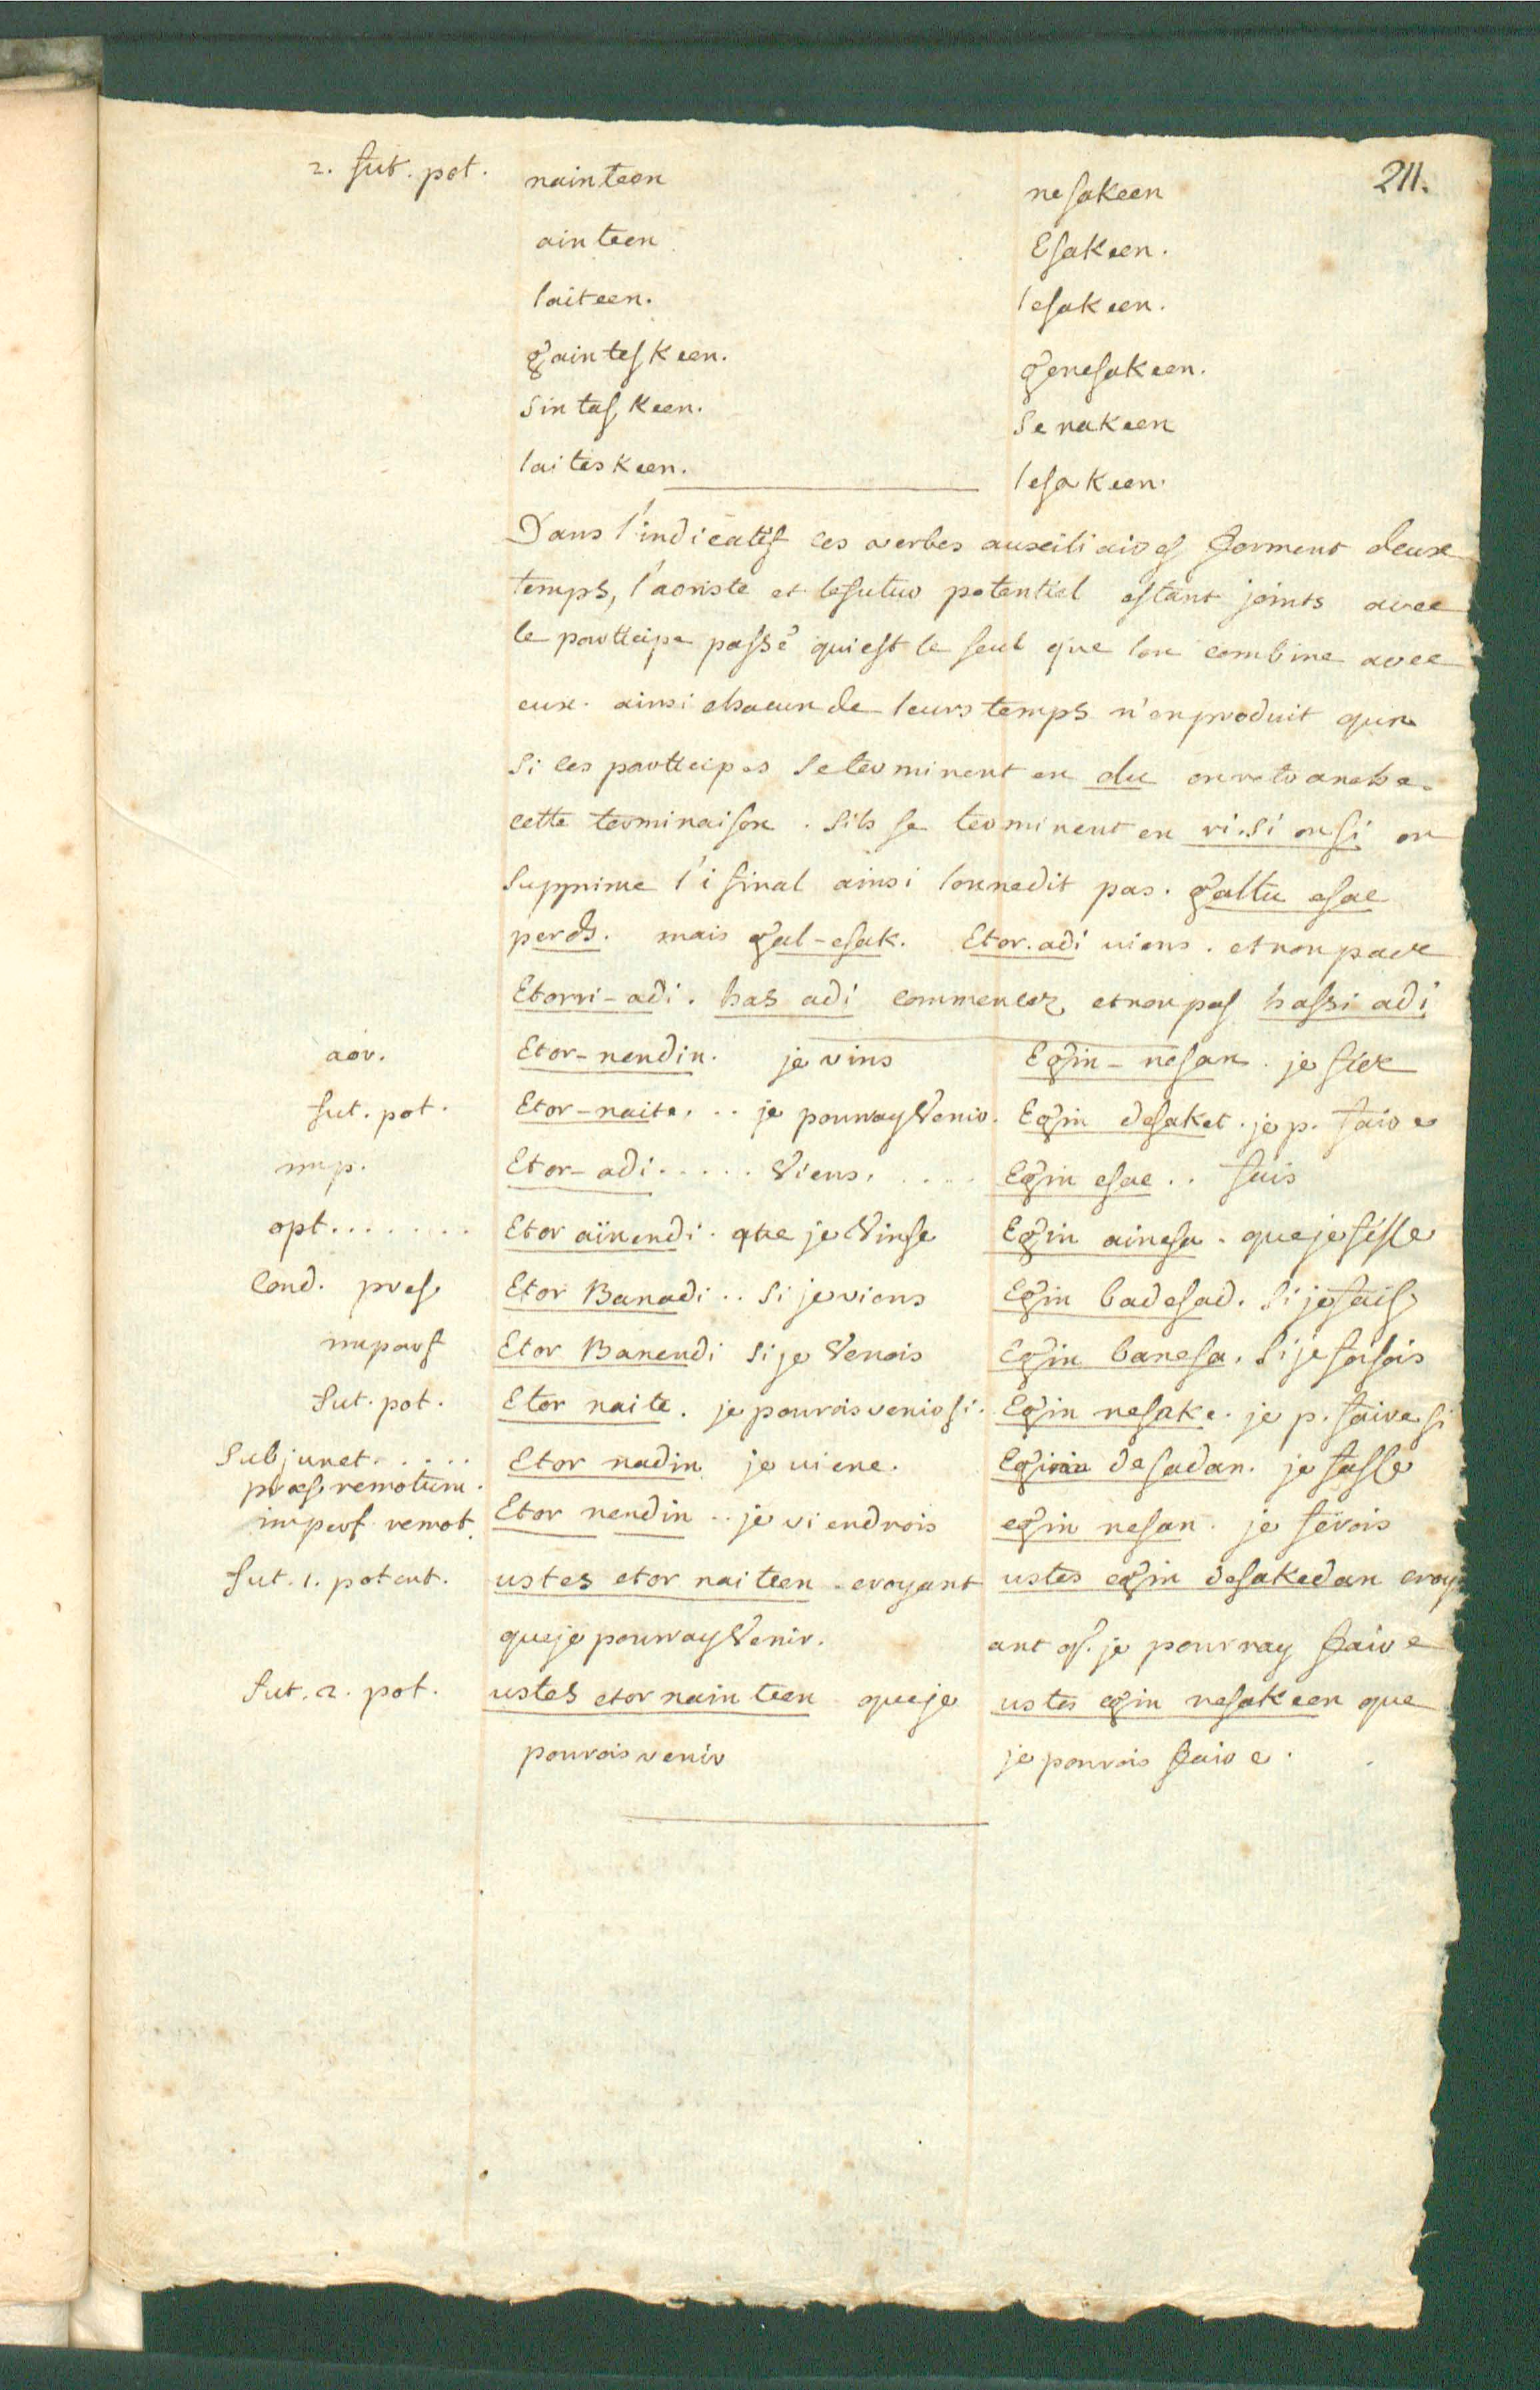 211.
2. fut. pot. nainteen nesakeen
ainteen Esakeen.
laiteen. lesakeen.
gainteskeen. genesakeen.
sintaskeen. senakeen
laiteskeen. lesakeen.
Dans l'indicatif les verbes auxiliaires forment deux
temps, l'aoriste et lefutur potentiel estant joints avec
le participe passé quiest le seul que lon combine avec
eux. ainsi chacun de leurs temps n'enproduit qun
si les participes seterminent en du onretranche
cette terminaison. sils se terminent en ri. si ou si on
supprime l'i final ainsi lonnedit pas. galtu esac
perds. mais gal-esak. Etor. adi viens. etnon pas
Etorri-adi. has adi commencez etnon pas hassi adi
aor. Etor-nendin. je vins Egin-nesan. je fis
fut. pot. Etor-naite. .. je pourray Venir. Egin desaket. je p. faire
imp. Etor-adi..... Viens. .... Egin esac .. fais
opt....... Etor aïnendi. que je Vinse Egin ainesa. queje fisse
Cond. pres Etor Banadi .. si jeviens Egin badesad. si je fais
imparf Etor Banendi si je Venois Egin banesa. si je faisois
fut. pot. Etor naite. je pourois venir si. Egin nesake. je p. faire si
Subjunct..... Etor nadin je viene. Egin desadan. je fasse
præs. remotum.
imperf remot. Etor nendin .. je viendrois egin nesan. je ferois
fut. 1. potent. ustes etor naiteen croyant ustes egin desakedan croy
queje pourray Venir. ant q. je pourray faire
fut. 2. pot. ustes etor nainteen queje ustes egin nesakeen que
pourois venir je pourois faire.